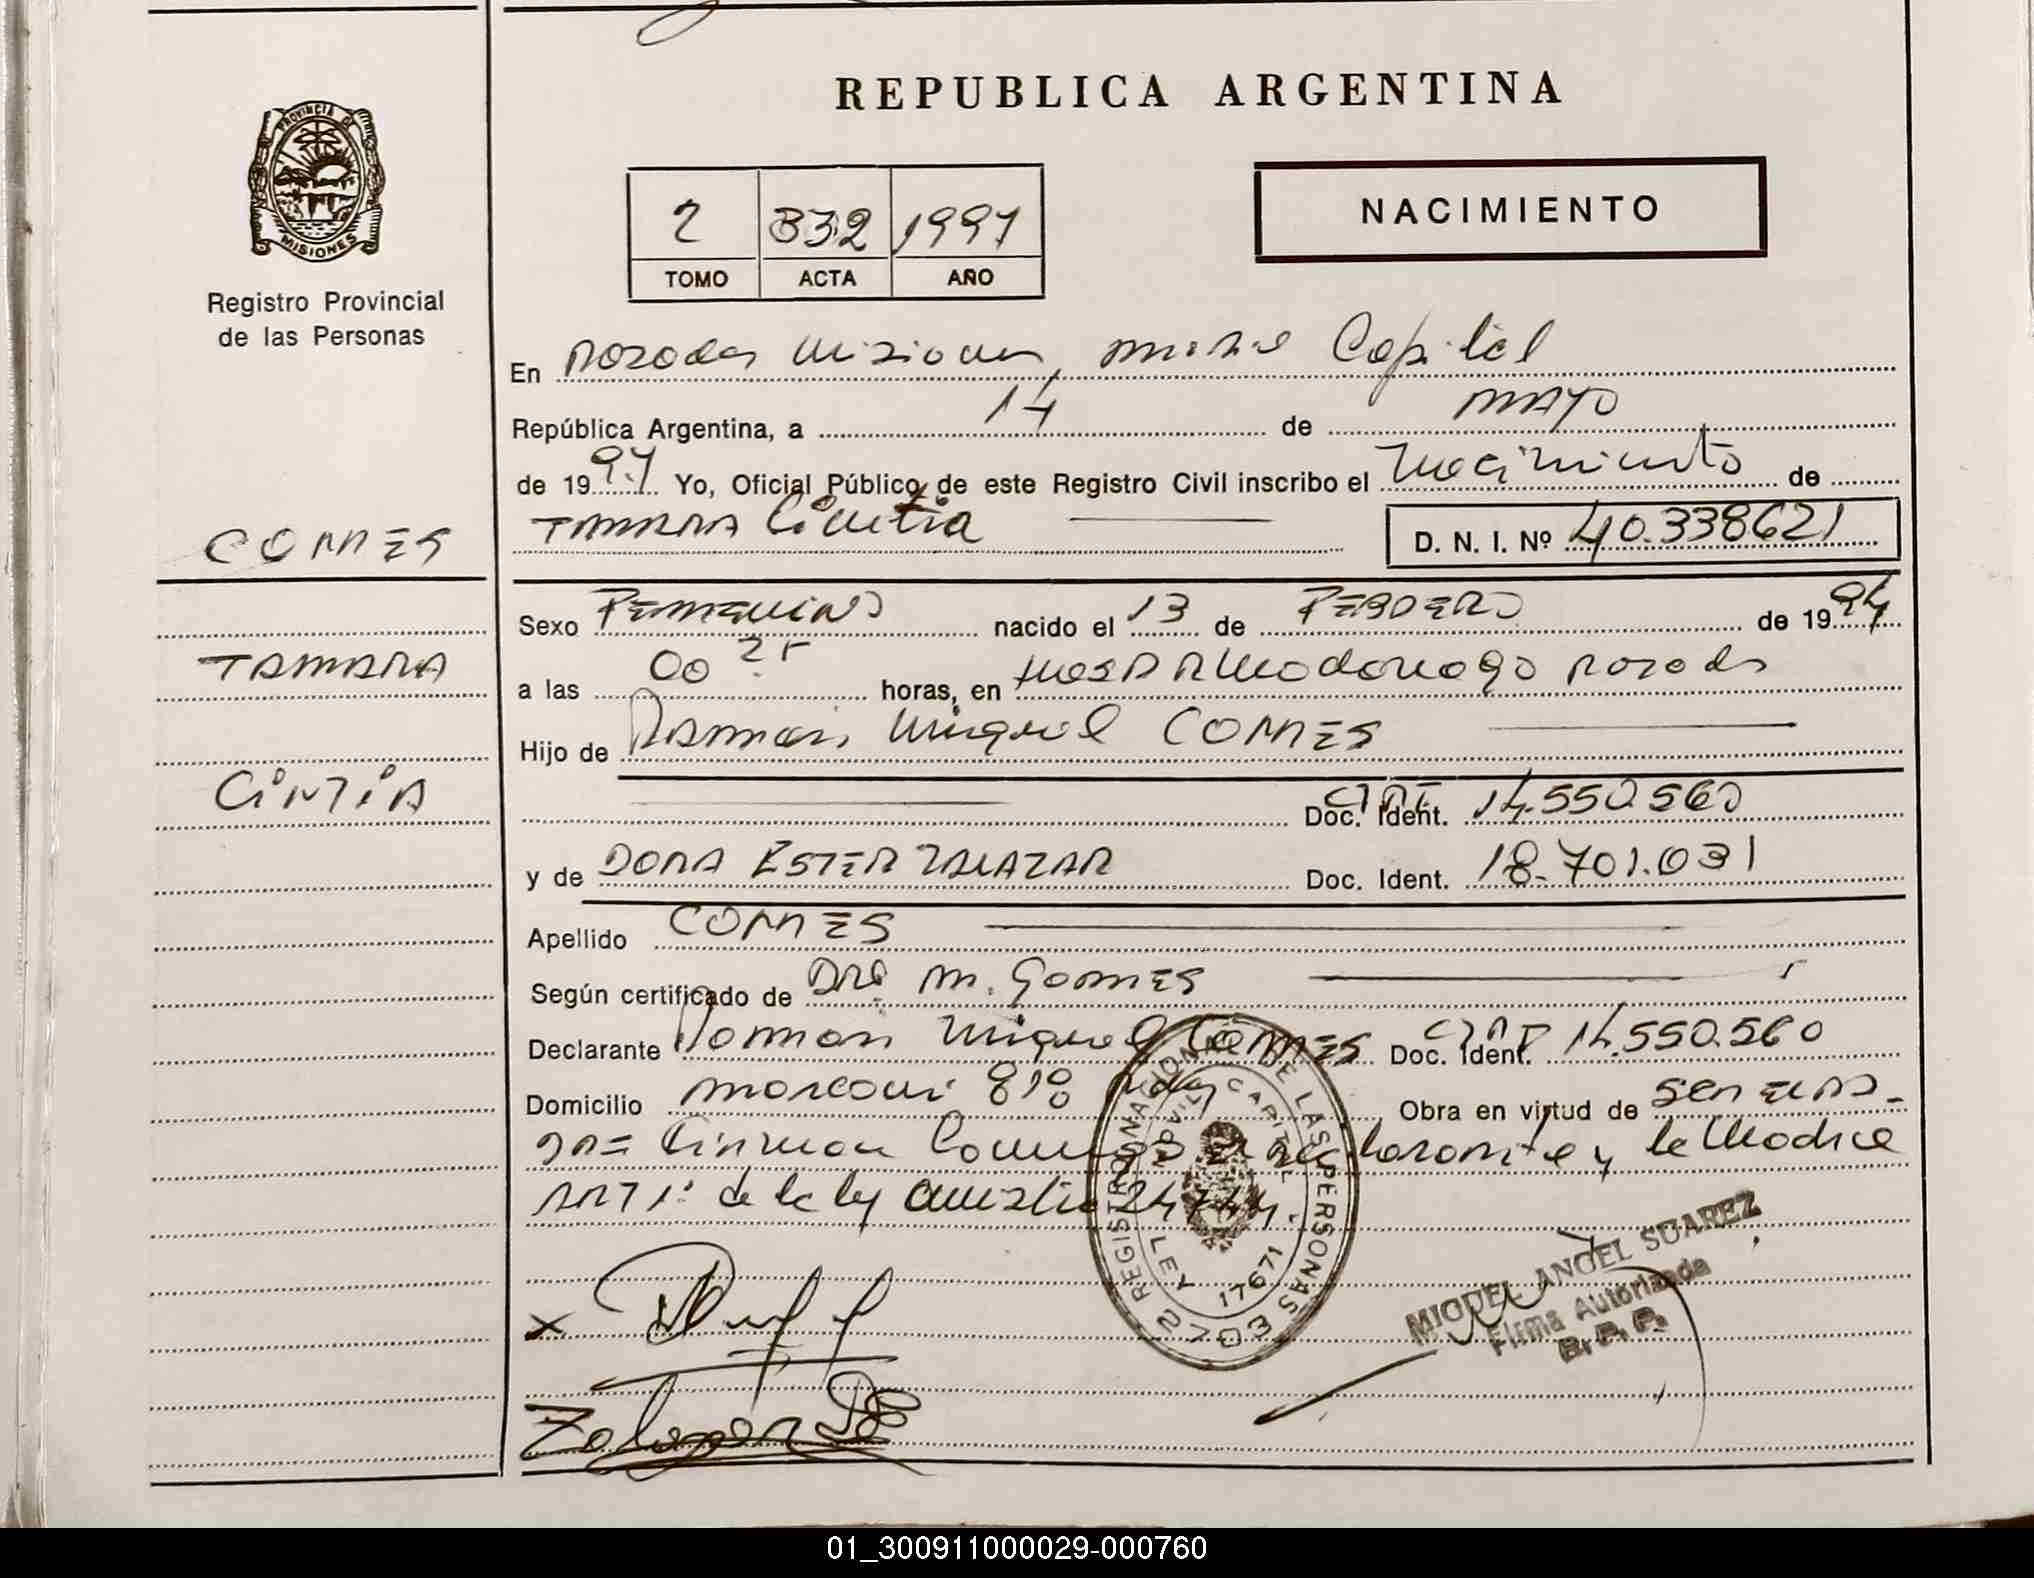 REPUBLICA ARGENTINA
PROVINCIA DE
MISIONES
Registro Provincial
de las Personas
2 832 1997
TOMO ACTA AÑO
NACIMIENTO
En Posadas Misiones, Capital
República Argentina, a 14 de MAYO
de 1997 Yo, Oficial Público de este Registro Civil inscribo el Nacimiento de
TAMARA Cintia D. N. I. Nº 40.338621
GOMES
TAMARA
CiNTiA
Sexo FEMENINO nacido el 13 de FEBRERO de 1994
a las 00 25 horas, en Posadas
Hijo de Ramon Miguel GOMES
Doc. Ident. 14.550.560
y de DORA ESTER ZALAZAR Doc. Ident. 18.701.031
Apellido GOMES
Según certificado de Dra. M. GOMES
Declarante Ramon Miguel GOMES Doc. Ident. 14.550.560
Domicilio 818 Obra en virtud de
Firman y la Madre
ART 1º de la ley 24
REGISTRO NACIONAL DE LAS PERSONAS
CIVIL CAPITAL
LEY 17671
2703
MIGUEL ANGEL SUAREZ
Firma Autorizada
R. P. P.
X
01_300911000029-000760